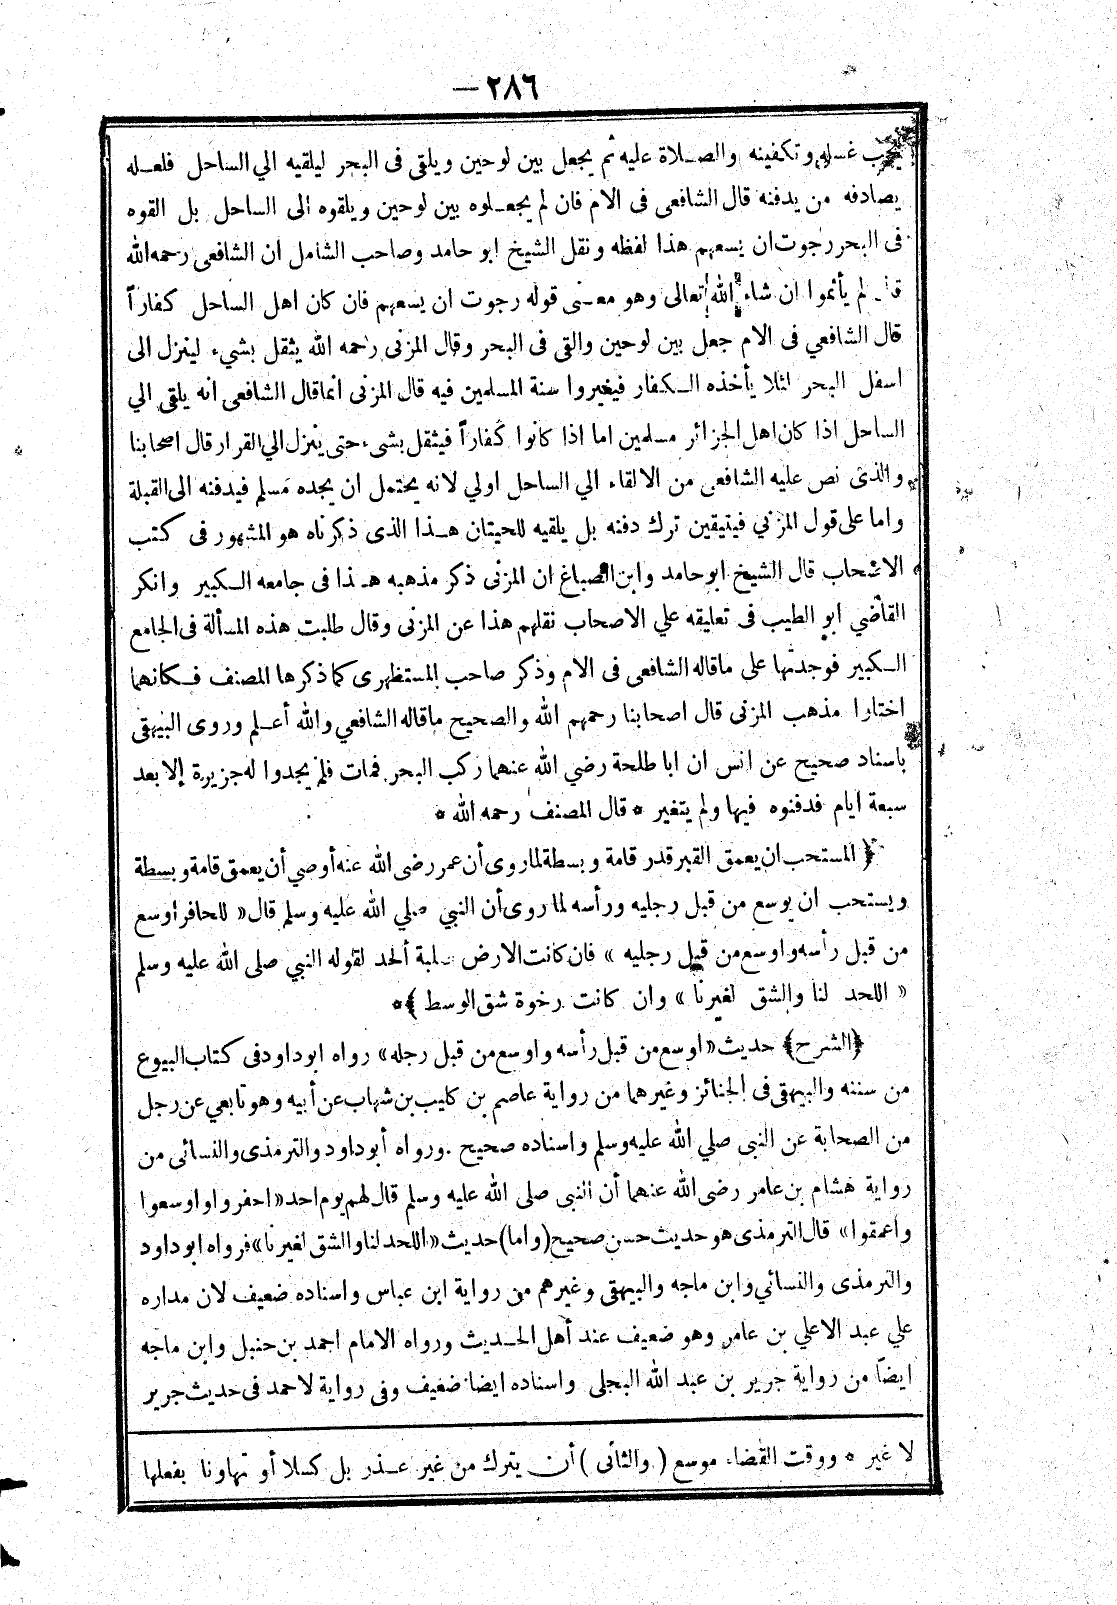 ٢٨٦ —
يجب غسله وتكفينه والصلاة عليه ثم يجعل بين لوحين ويلقى فى البحر ليلقيه الي الساحل فلعله
يصادفه من يدفنه قال الشافعى فى الام فان لم يجعلوه بين لوحين ويلقوه الى الساحل بل القوه
فى البحر رجوت ان يسعهم هذا لفظه ونقل الشيخ ابو حامد وصاحب الشامل ان الشافعى رحمه الله
قال لم يأثموا ان شاء الله تعالى وهو معنى قوله رجوت ان يسعهم فان كان اهل الساحل كفاراً
قال الشافعي فى الام جعل بين لوحين والقى فى البحر وقال المزنى رحمه الله يثقل بشيء لينزل الى
اسفل البحر لئلا يأخذه الكفار فيغيروا سنة المسلمين فيه قال المزنى انما قال الشافعى انه يلقى الي
الساحل اذا كان اهل الجزائر مسلمين اما اذا كانوا كفاراً فيثقل بشىء حتى ينزل الي القرار قال اصحابنا
والذى نص عليه الشافعى من الالقاء الي الساحل اولي لانه يحتمل ان يجده مسلم فيدفنه الى القبلة
واما على قول المزني فيتيقين ترك دفنه بل يلقيه للحيتان هذا الذى ذكرناه هو المشهور فى كتب
الاصحاب قال الشيخ ابو حامد وابن الصباغ ان المزنى ذكر مذهبه هذا فى جامعه الكبير وانكر
القاضي ابو الطيب فى تعليقه علي الاصحاب نقلهم هذا عن المزنى وقال طلبت هذه المسألة فى الجامع
الكبير فوجدتها على ماقاله الشافعى فى الام وذكر صاحب المستظهرى كما ذكرها المصنف فكانهما
اختارا مذهب المزنى قال اصحابنا رحمهم الله والصحيح ماقاله الشافعي والله أعلم وروى البيهقى
باسناد صحيح عن انس ان ابا طلحة رضي الله عنهما ركب البحر فمات فلم يجدوا له جزيرة إلا بعد
سبعة ايام فدفنوه فيها ولم يتغير * قال المصنف رحمه الله *
﴿ المستحب ان يعمق القبر قدر قامة وبسطة لما روى أن عمر رضى الله عنه أوصي أن يعمق قامة وبسطة
ويستحب ان يوسع من قبل رجليه ورأسه لما روى أن النبي صلي الله عليه وسلم قال « للحافر أوسع
من قبل رأسه واوسع من قبل رجليه » فان كانت الارض صلبة ألحد لقوله النبي صلى الله عليه وسلم
« اللحد لنا والشق لغيرنا » وان كانت رخوة شق الوسط ﴾ *
﴿الشرح﴾ حديث « اوسع من قبل رأسه واوسع من قبل رجله » رواه ابو داود فى كتاب البيوع
من سننه والبيهقى فى الجنائز وغيرهما من رواية عاصم بن كليب بن شهاب عن أبيه وهو تابعي عن رجل
من الصحابة عن النبى صلي الله عليه وسلم واسناده صحيح . ورواه أبو داود والترمذى والنسائى من
رواية هشام بن عامر رضى الله عنهما أن النبى صلى الله عليه وسلم قال لهم يوم احد « احفروا واوسعوا
واعمقوا » قال الترمذى هو حديث حسن صحيح (واما) حديث «اللحد لنا والشق لغيرنا» فرواه ابو داود
والترمذى والنسائي وابن ماجه والبيهقى وغيرهم من رواية ابن عباس واسناده ضعيف لان مداره
علي عبد الاعلي بن عامر وهو ضعيف عند أهل الحديث ورواه الامام احمد بن حنبل وابن ماجه
ايضاً من رواية جرير بن عبد الله البجلى واسناده ايضا ضعيف وفى رواية لاحمد فى حديث جرير
لا غير * ووقت القضاء موسع ( والثانى ) أن يترك من غير عذر بل كسلا أو تهاونا بفعلها